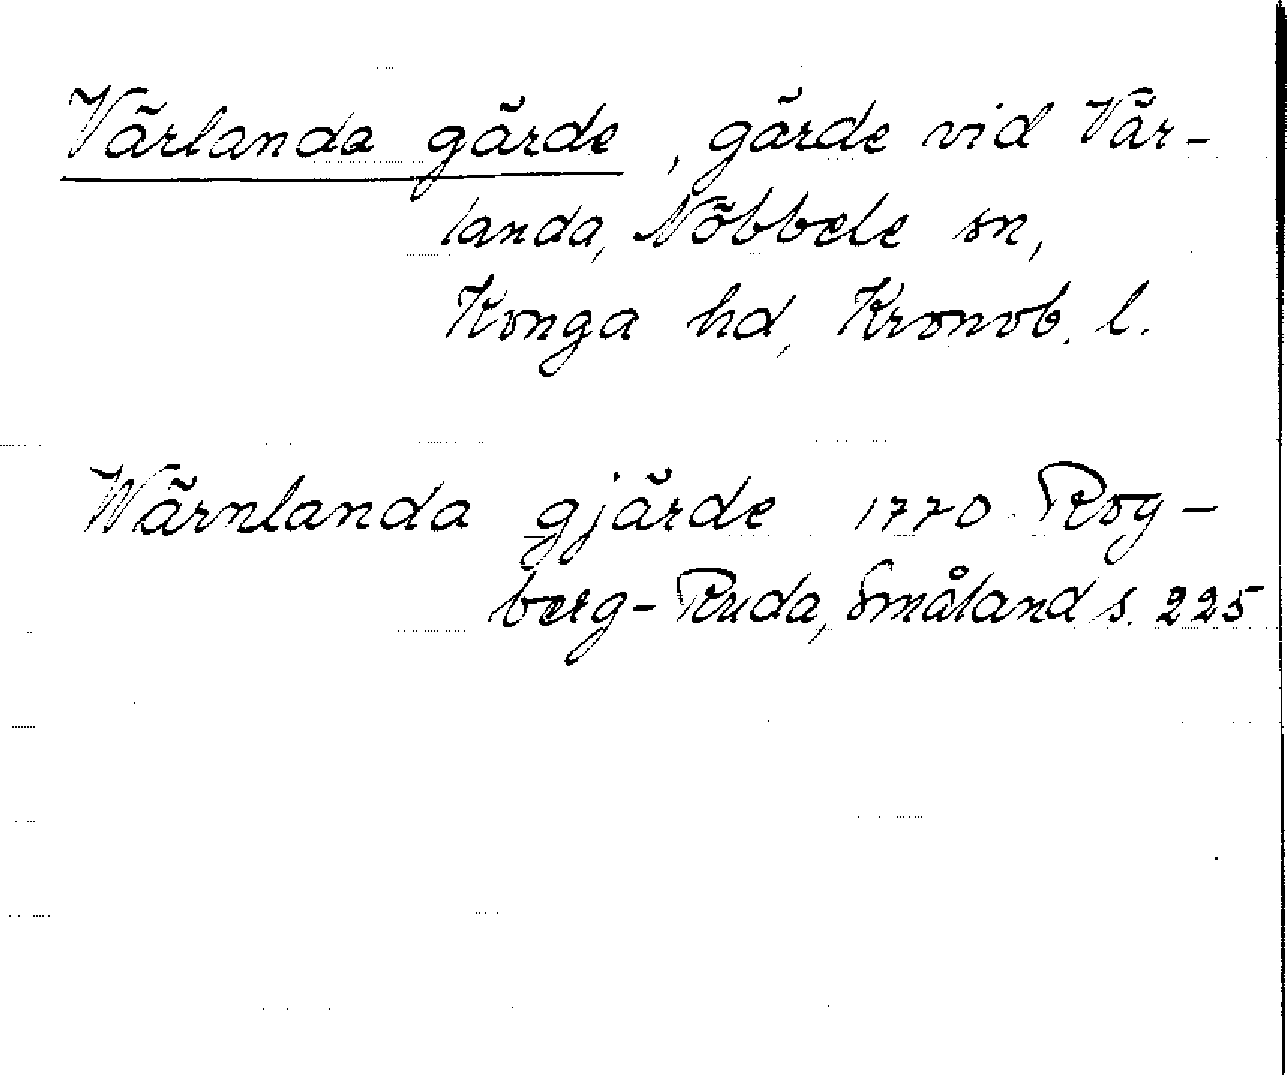 Värlanda gärde, gärde vid Vär-
landa, Nöbbele sn,
Konga hd, Kronob. l.
Wärnlanda gjärde 1770 Rog-
berg-Ruda, Småland s. 225